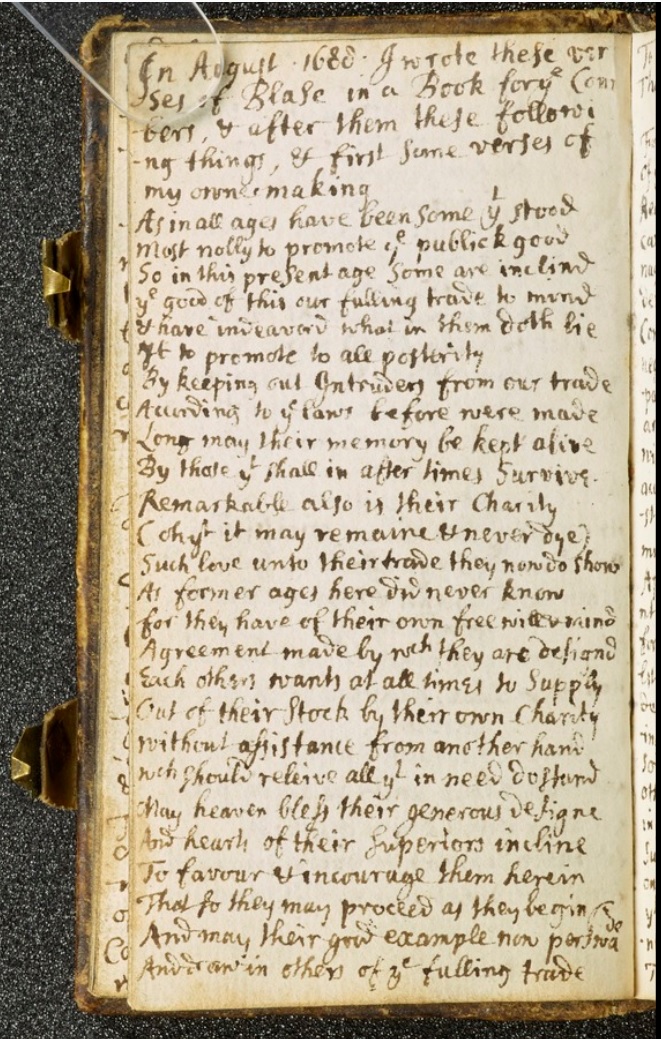 In August 1688 I wrote these ver
ses of Blase in a Book for yᵉ Com
bers, & after them these followi
-ng things, & first some verses of
my owne making
As in all ages have been some yᵗ stood
Most nolly to promote yᵉ publick good
So in this present age some are inclind
yᵉ good of this our fulling trade to mind
& have indeavord what in them doth lie
It to promote to all posterity
By keeping out Intruders from our trade
According to yᵉ laws before were made
Long may their memory be kept alive
By those yᵗ shall in after times Survive.
Remarkable also is their Charity
(oh yᵗ it may remaine & never dye)
Such love unto their trade they now do show
As former ages here did never know
for they have of their own free will & mind
Agreement made by wᶜʰ they are designd
Each others wants at all times to Supply
Out of their Stock by their own Charity
without assistance from another hand
wᶜʰ should releive all yᵗ in need do stand
May heaven bless their generous designe
And hearts of their Superiors incline
To favour & incourage them herein
That so they may proceed as they begin
And may their good example now perswade
And draw in others of yᵉ fulling trade